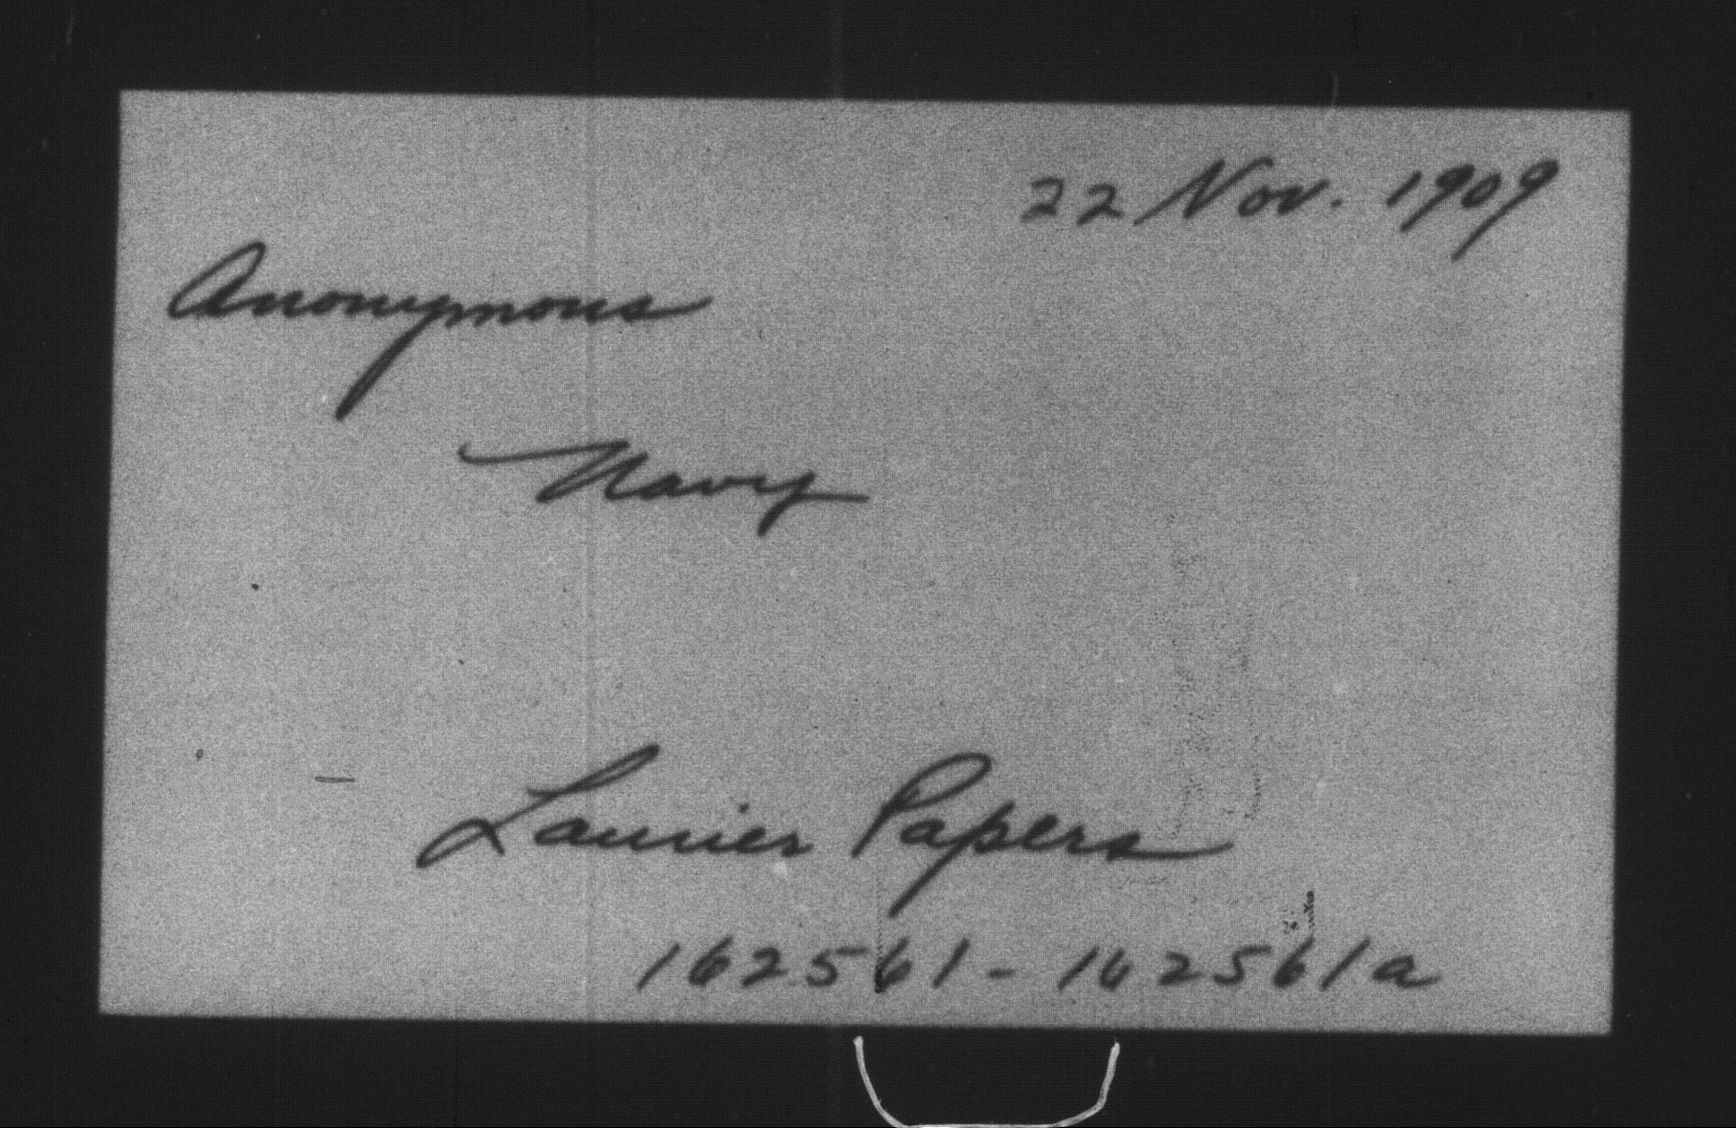 22 Nov. 1909
Anonymous
Navy
Laurier Papers
162561 - 162561a